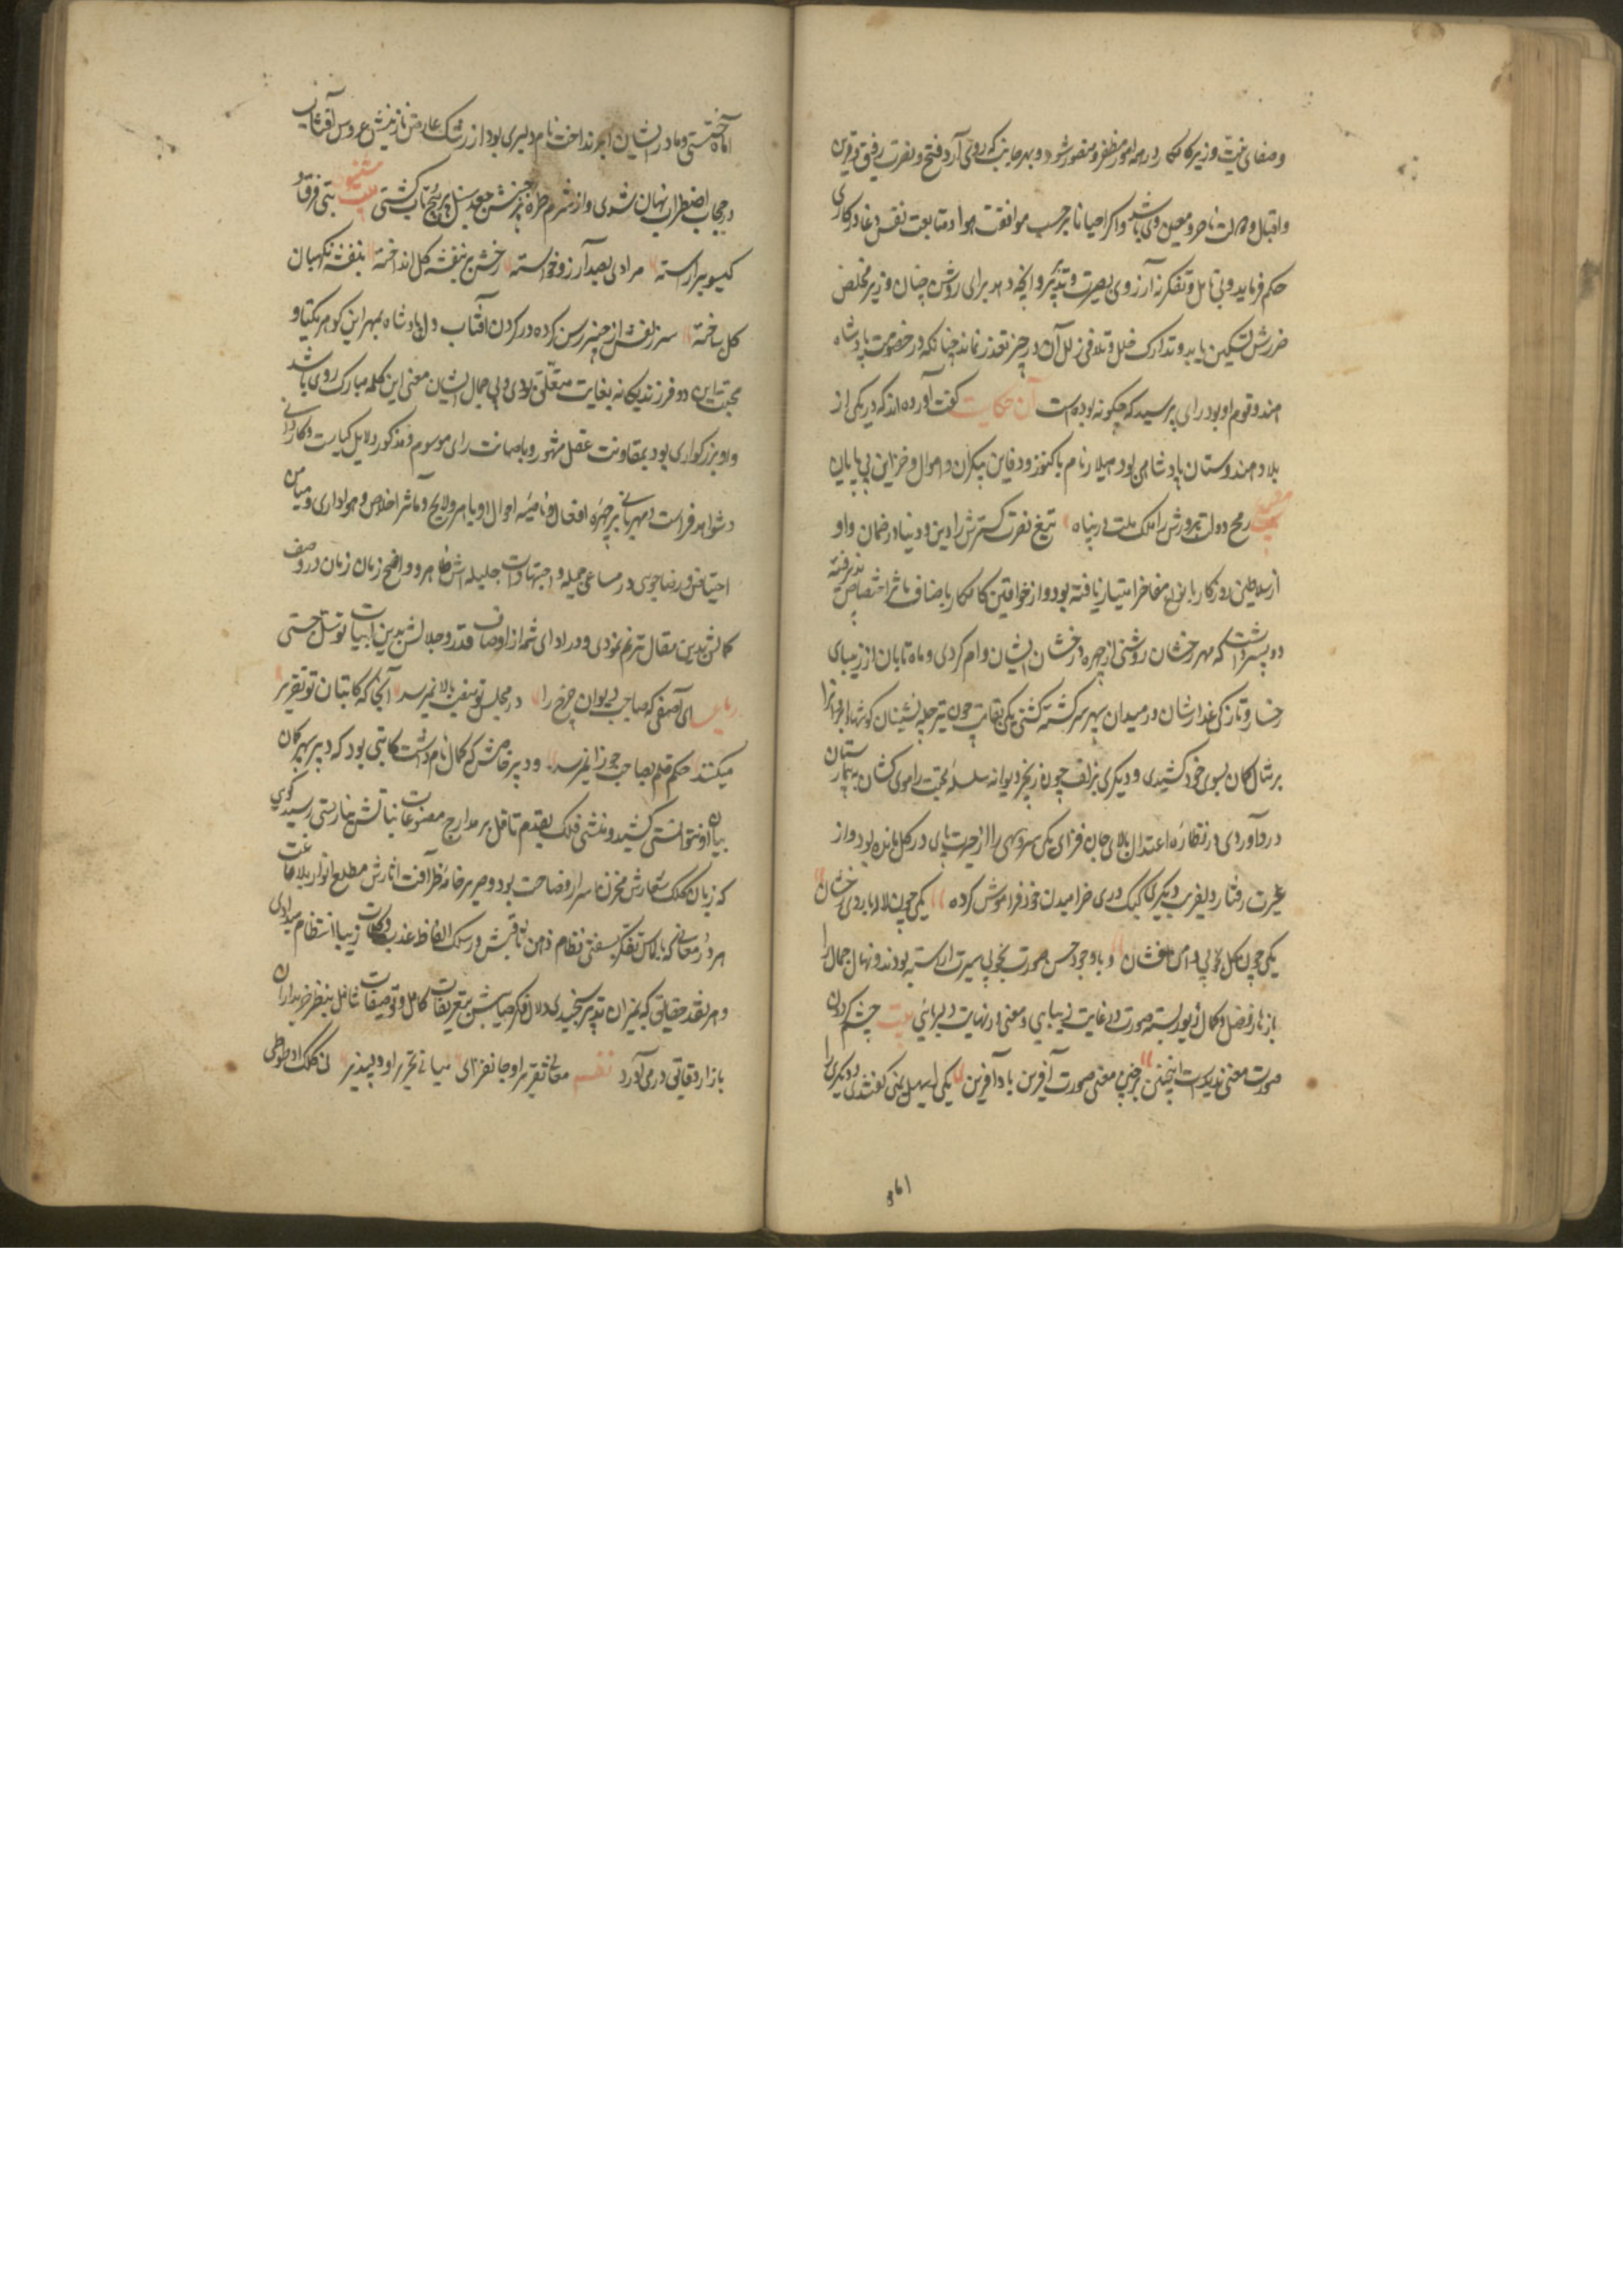 وصفای نیت وزیر کامکار در همه امور مظفر و منصور شود و بهر جانب که روی آرد فتح و نصرت رفیق و قرین
واقبال و دولت ناصر و معین وی باشد و اکر احیانا بر حسب موافقت هوا و متابعت نفس دغا در کاری
حکم فرماید و بی تامل و تفکر نه از روی بصیرت و تدبر و آنچه دهد برای روشن چنان وزیر مخلص
ضررش تسکین یابد و تدارک خلل و تلافی زلل آن در حیز تعذر نماند چنانکه در خصومت پادشاه
هند و قوم او بود رای پرسید که چکونه بوده است آن حکایت کفت آورده اند که در یکی از
بلاد هندوستان پادشاهی بود هیلار نام با کنوز و دفاین بیکران و اموال و خزاین بی پایان
بیت رمح دولت پرورش را ملک ملت در پناه تیغ نصرت کسترش را دین و دنیا در ضمان و او
از سلاطین روزکار بانواع مفاخر امتیاز یافته بود و از خواقین کامکار باصناف مآثر اختصاص پذیرفته
دو پسر داشت که مهر رخشان روشنی از چهره درخشان ایشان وام کردی و ماه تابان از زیبای
رخسار و تازکی عذارشان در میدان سپهر سرکشته کشتی یکی بقامت چون تیر چله نشینان کوشهٔ ابرو را
بر مثال کمان بسوی خود کشیدی و دیکری بزلف چون زنجیر دیوانه سلسلهٔ محبت را موی کشان به بیمارستان
درد آوردی در نظاره اعتدال بالای جان فزای یکی سرو سهی را از حیرت پای در کل مانده بود و از
غیرت رفتار دلفریب دیکری کبک دری خرامیدن خود فراموش کرده یکی چون لاله با روی رخشان
یکی چون کل بخوبی دامن افشان و با وجود حسن صورت بخوبی سیرت آراسته بودند و نهال جمال را
باز هار فضل و کمال زیور بسته صورت در غایت زیبایی و معنی در نهایت دلربائی بیت چشم کردون
صورت معنی ندیدست اینچنین بر چنین معنی صورت آفرین باد آفرین یکی را سهیل یمنی کفتندی و دیکری را
اماه ختنی و مادر ایشان ایراندخت نام دلبری بود از رشک عارض نازنینش عروس آفتاب
در حجاب اضطراب نهان شدی و از شرم طره پرشکنش جعد سنبل در پیچ و تاب کشتی مثنوی بتی فرق و
کیسو برآراسته مرادی بصد آرزو خواسته رخش بر بنفشه کل انداخته بنفشه نکهبان
کل ساخته سر زلفش از چنبر رسن کرده در کردن آفتاب دل پادشاه بمهر این کوهر یکتا و
محبت این دو فرزند یکانه بغایت متعلق بودی و بی جمال ایشان معنی این کلمه مبارک روی باشد
و او بزرکواری بود بمقاونت عقل مشهور و باصابت رای موسوم و مذکور دلایل کیاست و کاردانی
و شواهد فراست و مهربانی بر چهره افعال و ناصیه احوال او باهر و لایح و مآثر اخلاص و هواداری و میامن
اختصاص و رضاجویی در مساعی جمیله و اجتهادات جلیله اش ظاهر و واضح زمان زمان در وصف
کمالش بدین مقال ترنم نمودی و در ادای شمه از اوصاف قدر و جلالش بدین ابیات توسل جستی
رباعی ای آصفی که صاحب دیوان چرخ را در مجلس تو منصب بالا نمیرسد آنجا که کاتبان تو تقریر
میکنند حکم قلم بصاحب جوزا نمیرسد و دبیر خاصش که کمال نام داشت کاتبی بود که دبیر سپهر کمان
بیان او نتوانستی کشید و منشی فلک بقدم تامل بر مدارج مصنوعات بنانش نیارستی رسید کویی
که زبان کلک شعارش مخزن اسرار فصاحت بود و صریر خامه ظرافت آثارش مطلع انوار بلاغت
هر در معانی که بالماس تفکر بسفتی نظام ذهن ثاقبش در سلک الفاظ عذب و نکات زیبا انتظام میدادی
و هر نقد حقایقی که بمیزان تدبر سنجیدی دلال فکر صایبش بتعریفات کامل و توصیفات شامل بنظر خریداران
بازار دقایق درمی آورد نظم معانی تقریر او جانفزای مبانی تحریر او دلپذیر نی کلک او طوطی